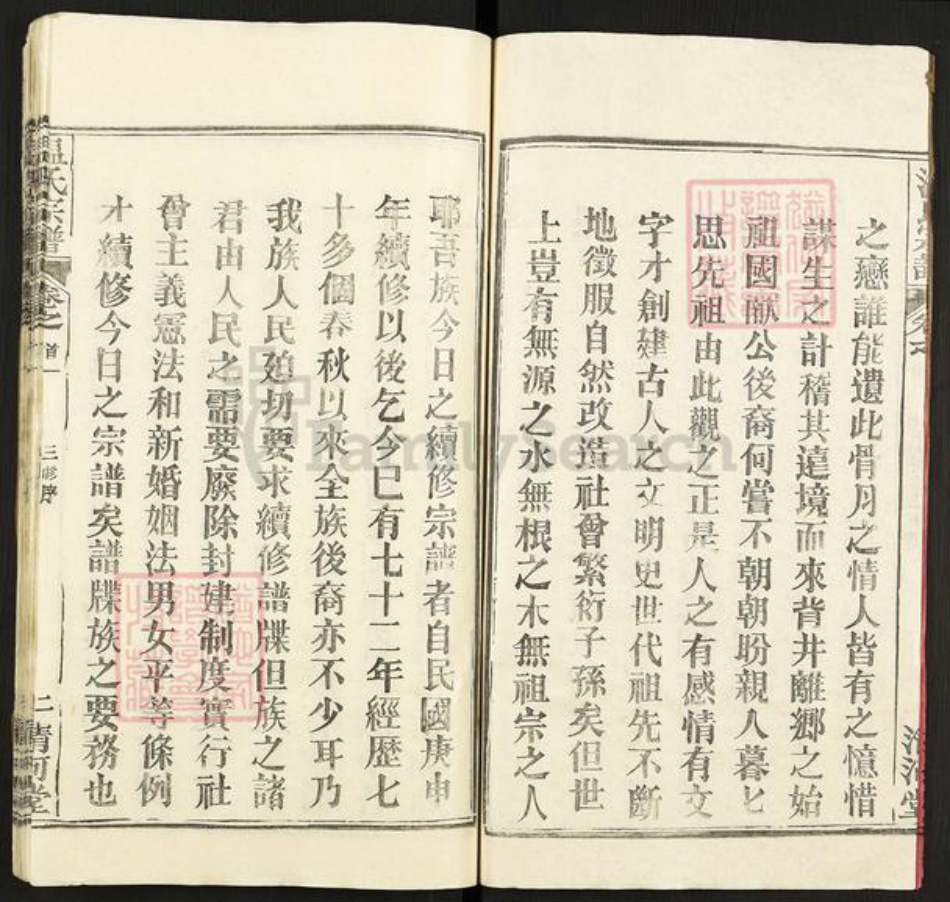 之戀誰能遺此骨月之情人皆有之憶惜
謀生之計稽其遠境而來背井離鄉之始
祖國猷公後裔何嘗不朝朝盼親人暮七
思先祖由此觀之正是人之有感情有文
字才創建古人之文明史世代祖先不斷
地徵服自然改造社會繁衍子孫矣但世
上豈有無源之水無根之木無祖宗之人
耶吾族今日之續修宗譜者自民國庚申
年續修以後乞今巳有七十二年經歷七
十多個春秋以來全族後裔亦不少耳乃
我族人民廹切要求續修譜牒但族之諸
君由人民之需要廢除封建制度實行社
會主義憲法和新婚姻法男女平等條例
才續修今日之宗譜矣譜牒族之要務也
溫氏宗譜
卷之
首一
三修序
二
清河堂
FamilySearch